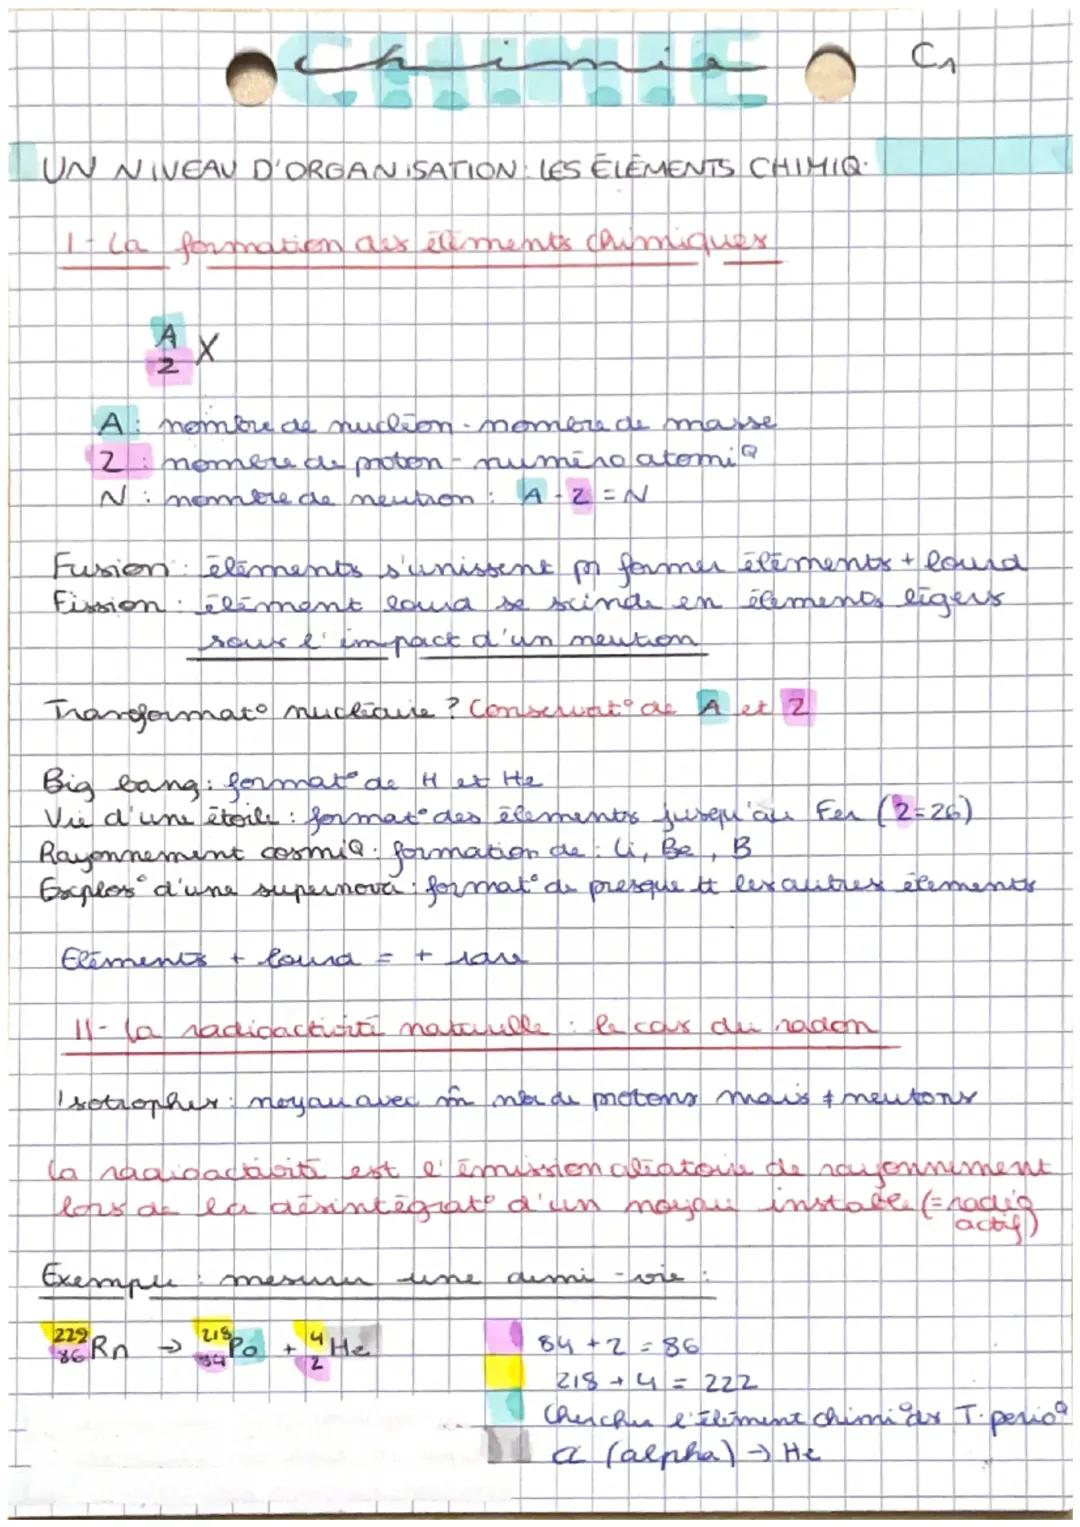 Chimie
CHIMIE
C1
UN NIVEAU D'ORGANISATION: LES ÉLÉMENTS CHIMIQ.
I- La formation des éléments chimiques
A
Z X
A : nombre de nucléon - nombre de masse
Z : nombre de proton - numéro atomiQ
N : nombre de neutron : A - Z = N
Fusion : éléments s'unissent pr former éléments + lourd
Fission : élément lourd se scinde en éléments légers
sous l'impact d'un neutron
Transformat° nucléaire ? Conservat° de A et Z
Big bang : format° de H et He
Vie d'une étoile : format° des éléments jusqu'au Fer (Z=26)
Rayonnement cosmiQ : formation de : Li, Be, B
Explos° d'une supernova : format° de presque tt les autres éléments
Eléments + lourd = + rare
II- La radioactivité naturelle : le cas du radon
Isotrophes : noyau avec m̂ nbr de protons mais ≠ neutons
La radioactivité est l'émission aléatoire de rayonnement
lors de la désintégrat° d'un noyau instable (= radio
actif)
Exemple : mesurer une demi-vie :
222 86 Rn → 218 84 Po + 4 2 He
84 + 2 = 86
218 + 4 = 222
Chercher l'élément chimiQ ds T. périoQ
α (alpha) → He